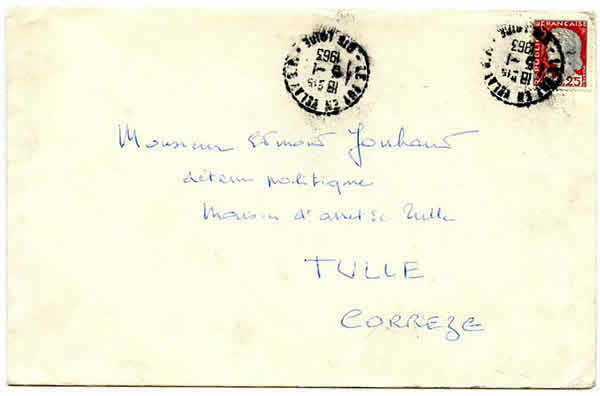 LE PUY EN VELAY R.P.
HTE LOIRE
18 H 15
9 - 1
1963
LE PUY EN VELAY R.P.
HTE LOIRE
18 H 15
1963
REPUBLIQUE FRANÇAISE
0,25
Monsieur Edmond Jouhaud
détenu politique
Maison d'arrêt de Tulle
TULLE
CORREZE